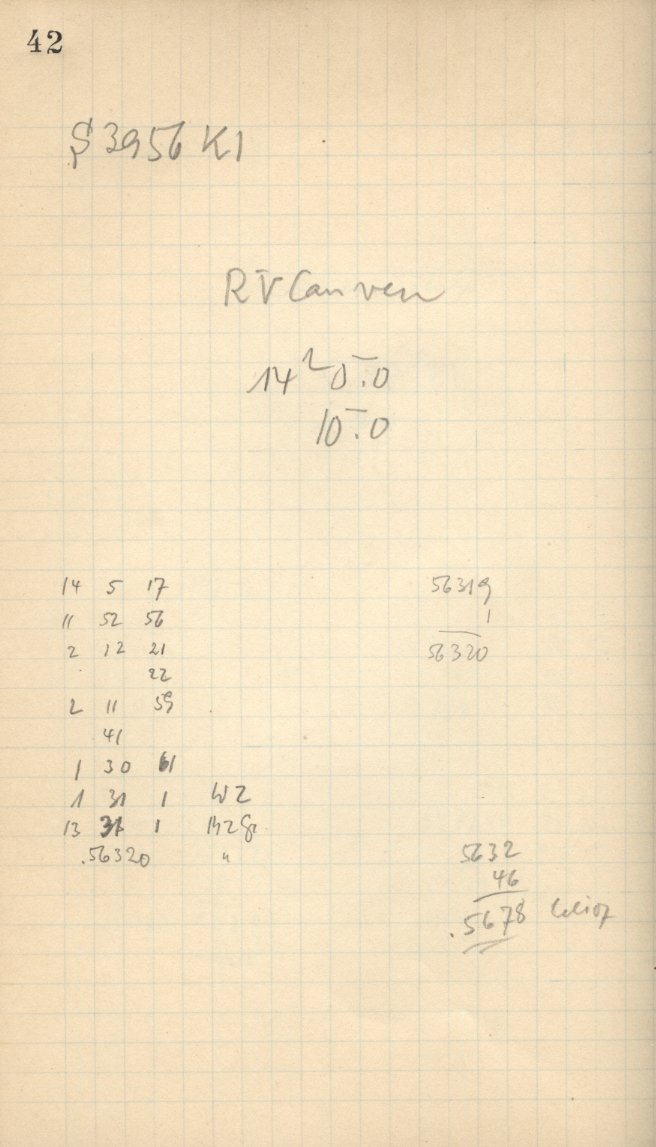 42
S 3956 K1
R V Can ven
14 2 5.0
10.0
14 5 17
11 52 56
2 12 21
22
2 11 59
41
1 30 61
1 31 1 WZ
13 31 1 MZGr
.56320 "
56319
1
56320
5632
46
.5678